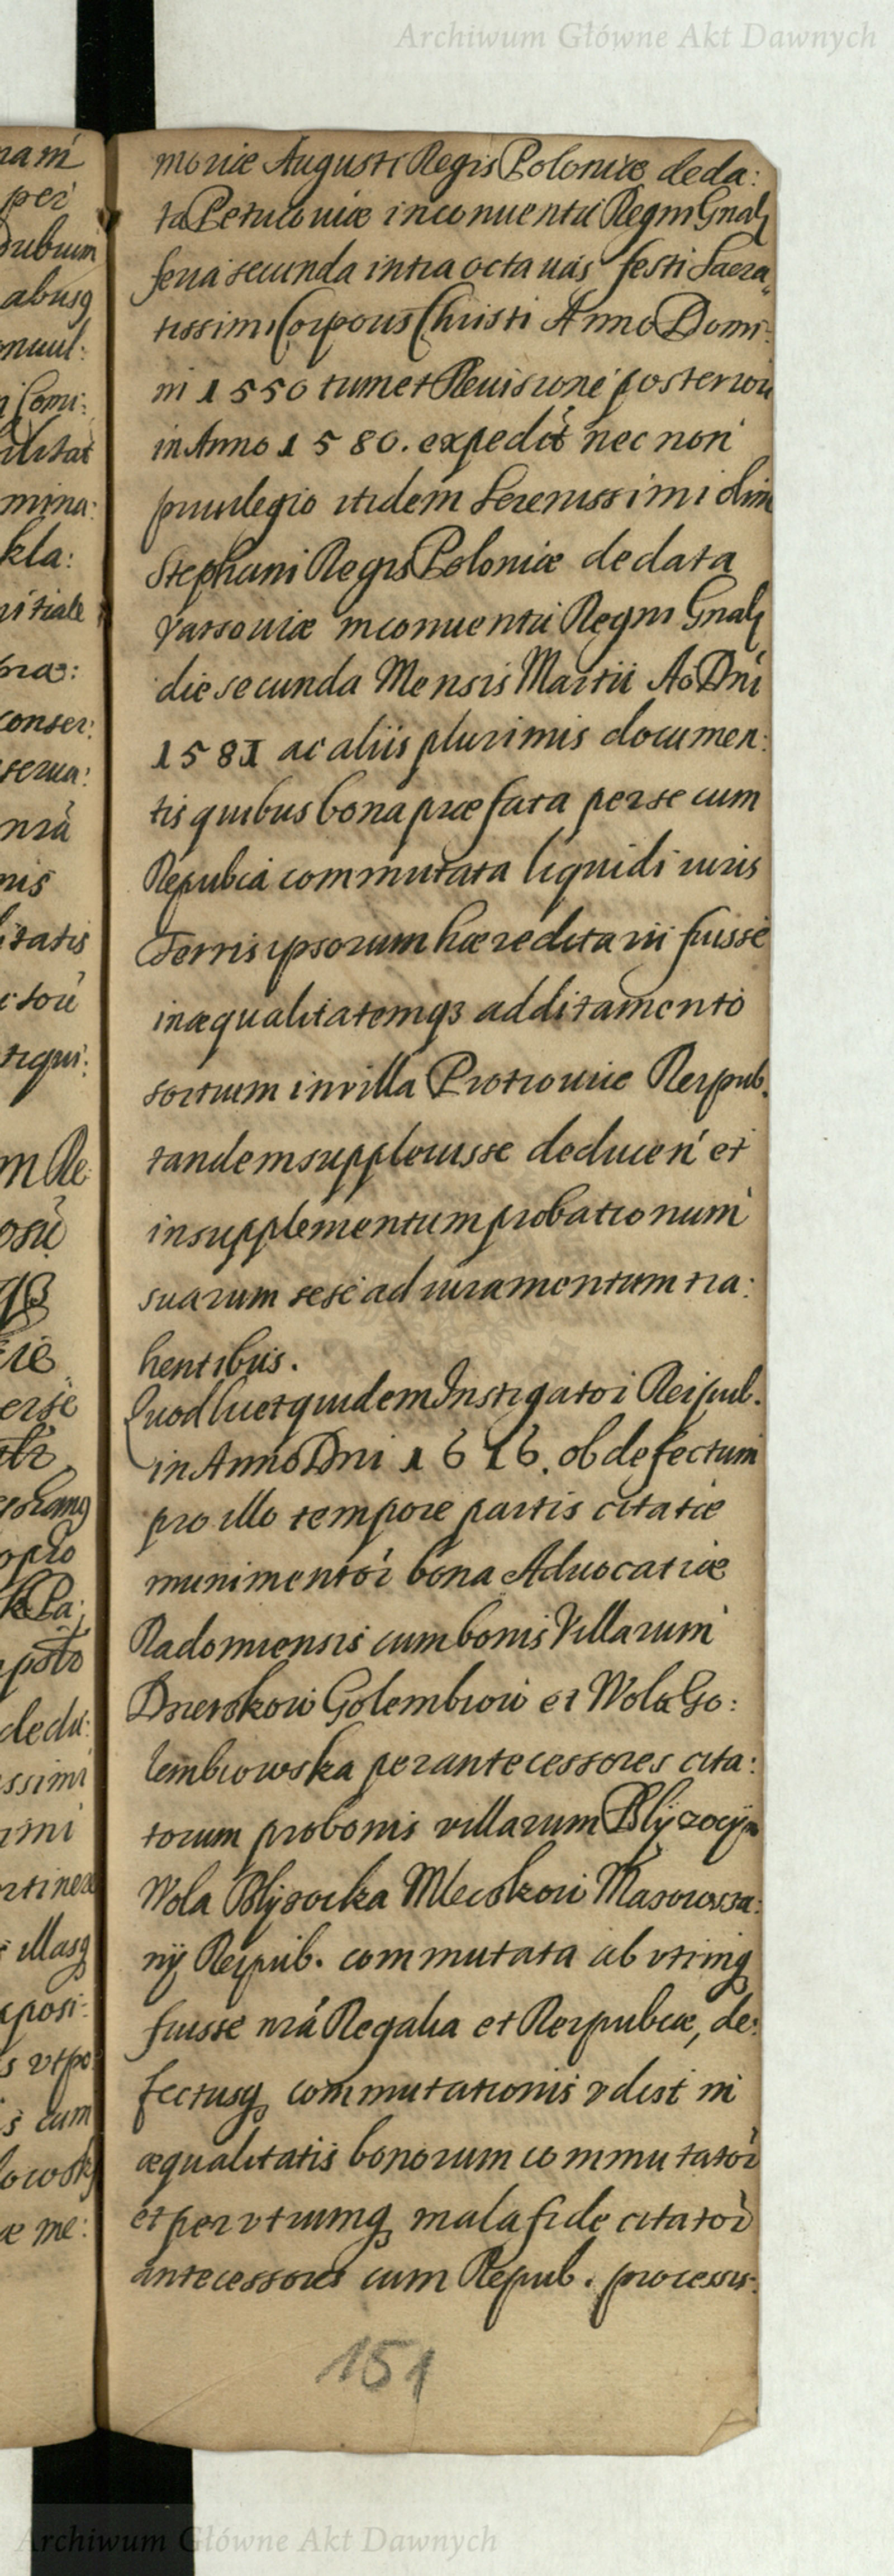 Archiwum Główne Akt Dawnych
moriæ Augusti Regis Poloniæ de da:
ta Petricoviæ in conventu Regni Gnali
feria secunda intra octavas festi Sacra
tissimi Corporis Christi Anno Domi:
ni 1550 tum et Revisione posteriori
in Anno 1580. expedit nec non
privilegio itidem Serenissimi olim
Stephani Regis Poloniæ de data
Varsoviæ in conventu Regni Gnali
die secunda Mensis Martii Ao Dni
1581 ac aliis plurimis documen:
tis quibus bona præfata per se cum
Republca commutata liquidi iuris
Terris ipsorum hæreditarii fuisse
inæqualitatemqz additamento
sortium in villa Piotrowice Reipub.
tandem supplevisse deducen et
in supplementum probationum
suarum sese ad iuramentum tra:
hentibus.
Quod licet quidem Instigator Reipub.
in Anno Dni 1616. ob defectum
pro illo tempore partis citatæ
munimentor bona Advocatiæ
Radomiensis cum bonis Villarum
Golembiow et Wola Go:
lembiowska per antecessores cita:
torum pro bonis villarum
Wola Mleczkow
nÿ Reipub. commutata ab utrinq
fuisse nra Regalia et Reipubcæ, de:
fectusq commutationis vdist in
æqualitatis bonorum commutator
et per utrumq mala fide citator
antecessores cum Repub. processis:
151
nam
per
dubium
abusq
Comi:
ilitat
mina:
kla:
itiale
conser:
serva:
nra
nis
itatis
tiqui:
m Re
opto
k Pa:
dedu:
ssimi
imi
rtinere
illasq
posi:
s vtpo
s cum
æ me:
Archiwum Główne Akt Dawnych